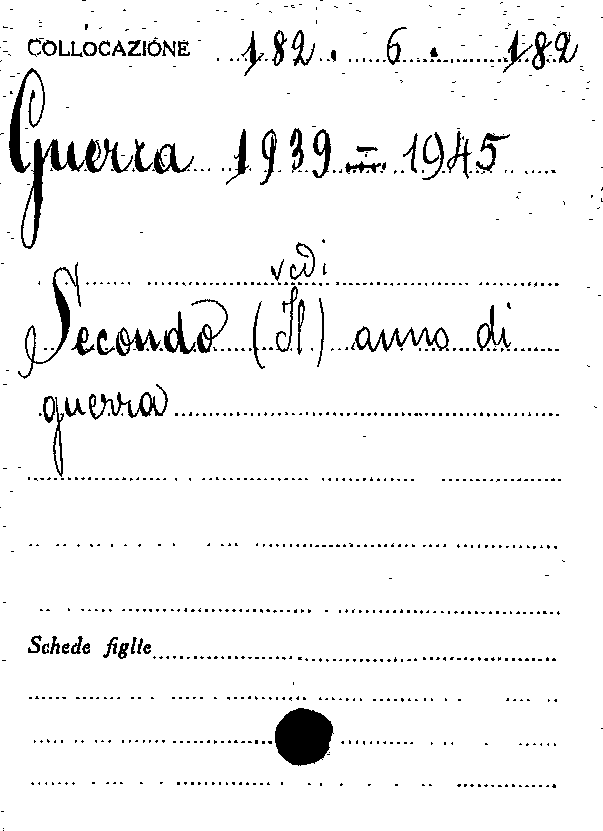 COLLOCAZIONE 182. 6. 182
Guerra 1939-1945
vedi
Secondo (Il) anno di
guerra
Schede figlie